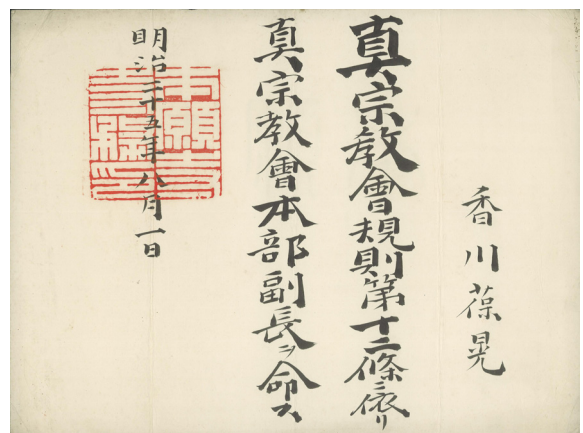 香川葆晃
真宗教會規則第十二條ニ依リ
真宗教會本部副長ヲ命ス
明治三十五年八月一日